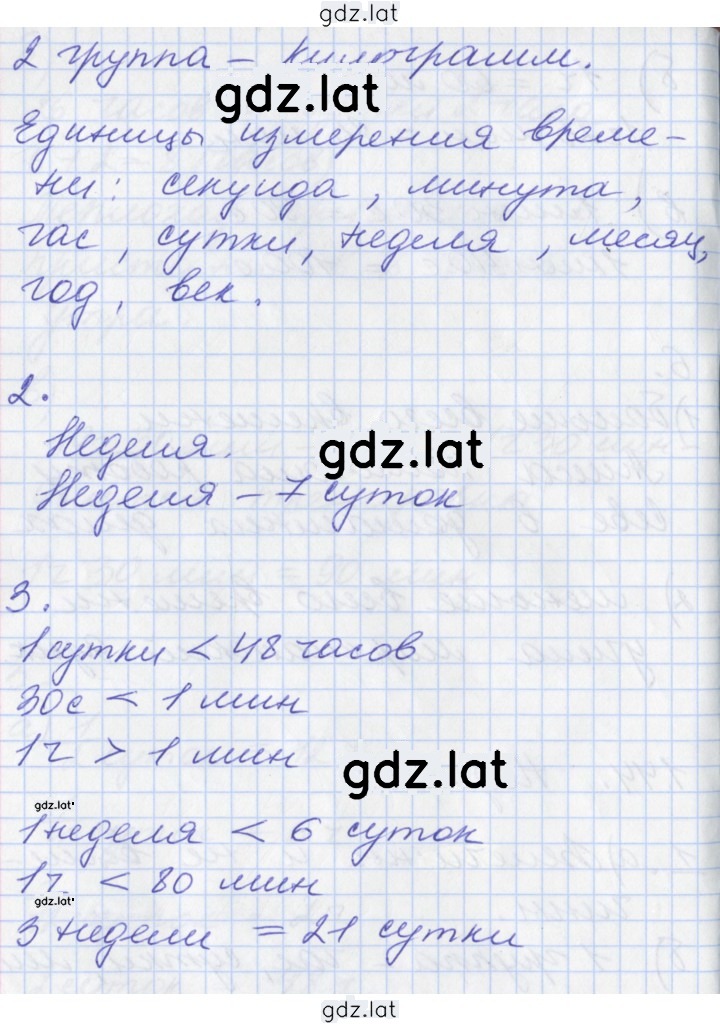 gdz.lat
2 группа – килограмм.
gdz.lat
Единицы измерения време-
ни: секунда, минута,
час, сутки, неделя, месяц,
год, век.
2.
Неделя.
gdz.lat
Неделя – 7 суток
3.
1 сутки < 48 часов
30с < 1 мин
1ч > 1 мин
gdz.lat
gdz.lat
1 неделя < 6 суток
1ч < 80 мин
gdz.lat
3 недели = 21 сутки
gdz.lat